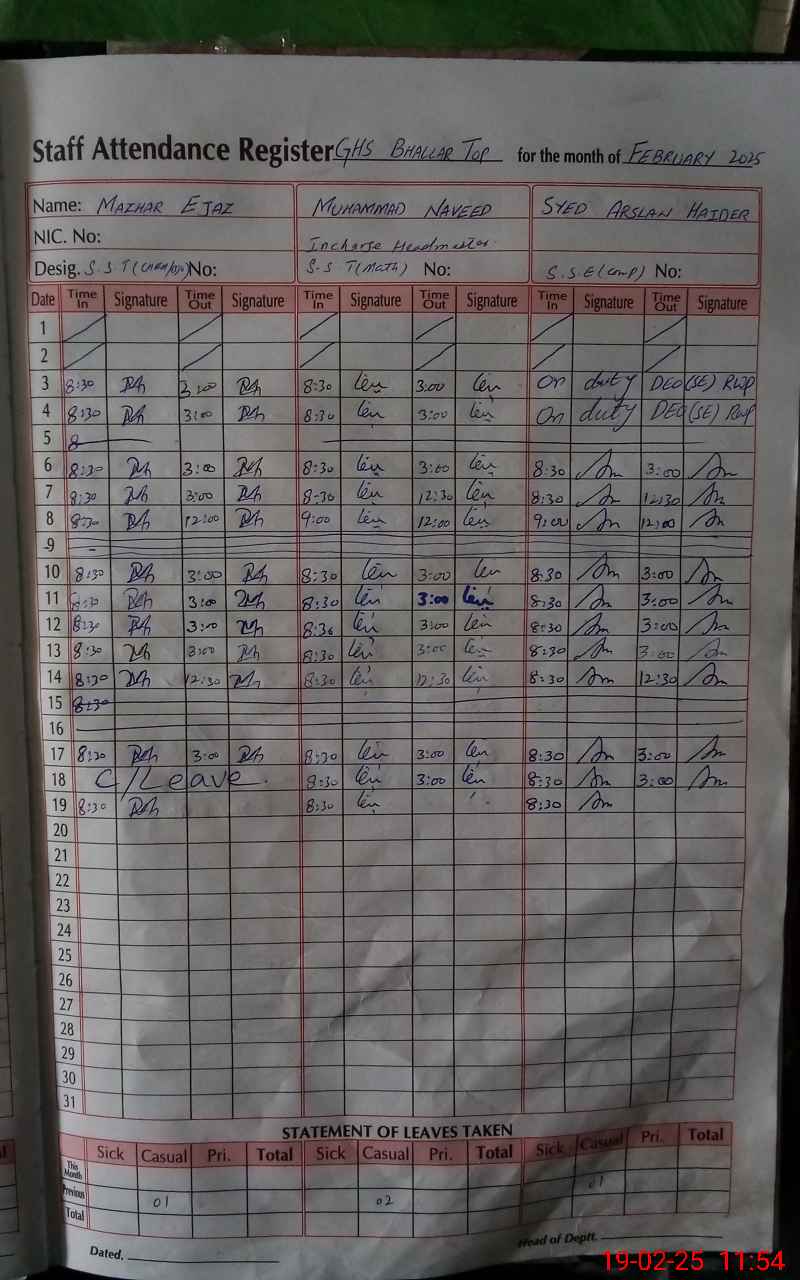 Staff Attendance Register GHS BHALLAR TOP for the month of FEBRUARY 2025
Name: MAZHAR EJAZ MUHAMMAD NAVEED SYED ARSLAN HAIDER
NIC. No: Incharge Headmaster
Desig. S.S.T( No: S.S T(MATH) No: S.S.E(COMP) No:
Date Time In Signature Time Out Signature Time In Signature Time Out Signature Time In Signature Time Out Signature
1
2
3 8:30 3:00 8:30 3:00 On duty DEO(SE) RWP
4 8:30 3:00 8:30 3:00 On duty DEO(SE) RWP
5 8
6 8:30 3:00 8:30 3:00 8:30 3:00
7 8:30 3:00 8:30 12:30 8:30 12:30
8 8:30 12:00 9:00 12:00 9:00 12:00
9
10 8:30 3:00 8:30 3:00 8:30 3:00
11 8:30 3:00 8:30 3:00 8:30 3:00
12 8:30 3:00 8:30 3:00 8:30 3:00
13 8:30 3:00 8:30 3:00 8:30 3:00
14 8:30 12:30 8:30 12:30 8:30 12:30
15 8:30
16
17 8:30 3:00 8:30 3:00 8:30 3:00
18 C/Leave. 8:30 3:00 8:30 3:00
19 8:30 8:30 8:30
20
21
22
23
24
25
26
27
28
29
30
31
STATEMENT OF LEAVES TAKEN
Sick Casual Pri. Total Sick Casual Pri. Total Sick Casual Pri. Total
This Month
Previous 01 02 01
Total
Dated. Head of Deptt.
19-02-25 11:54